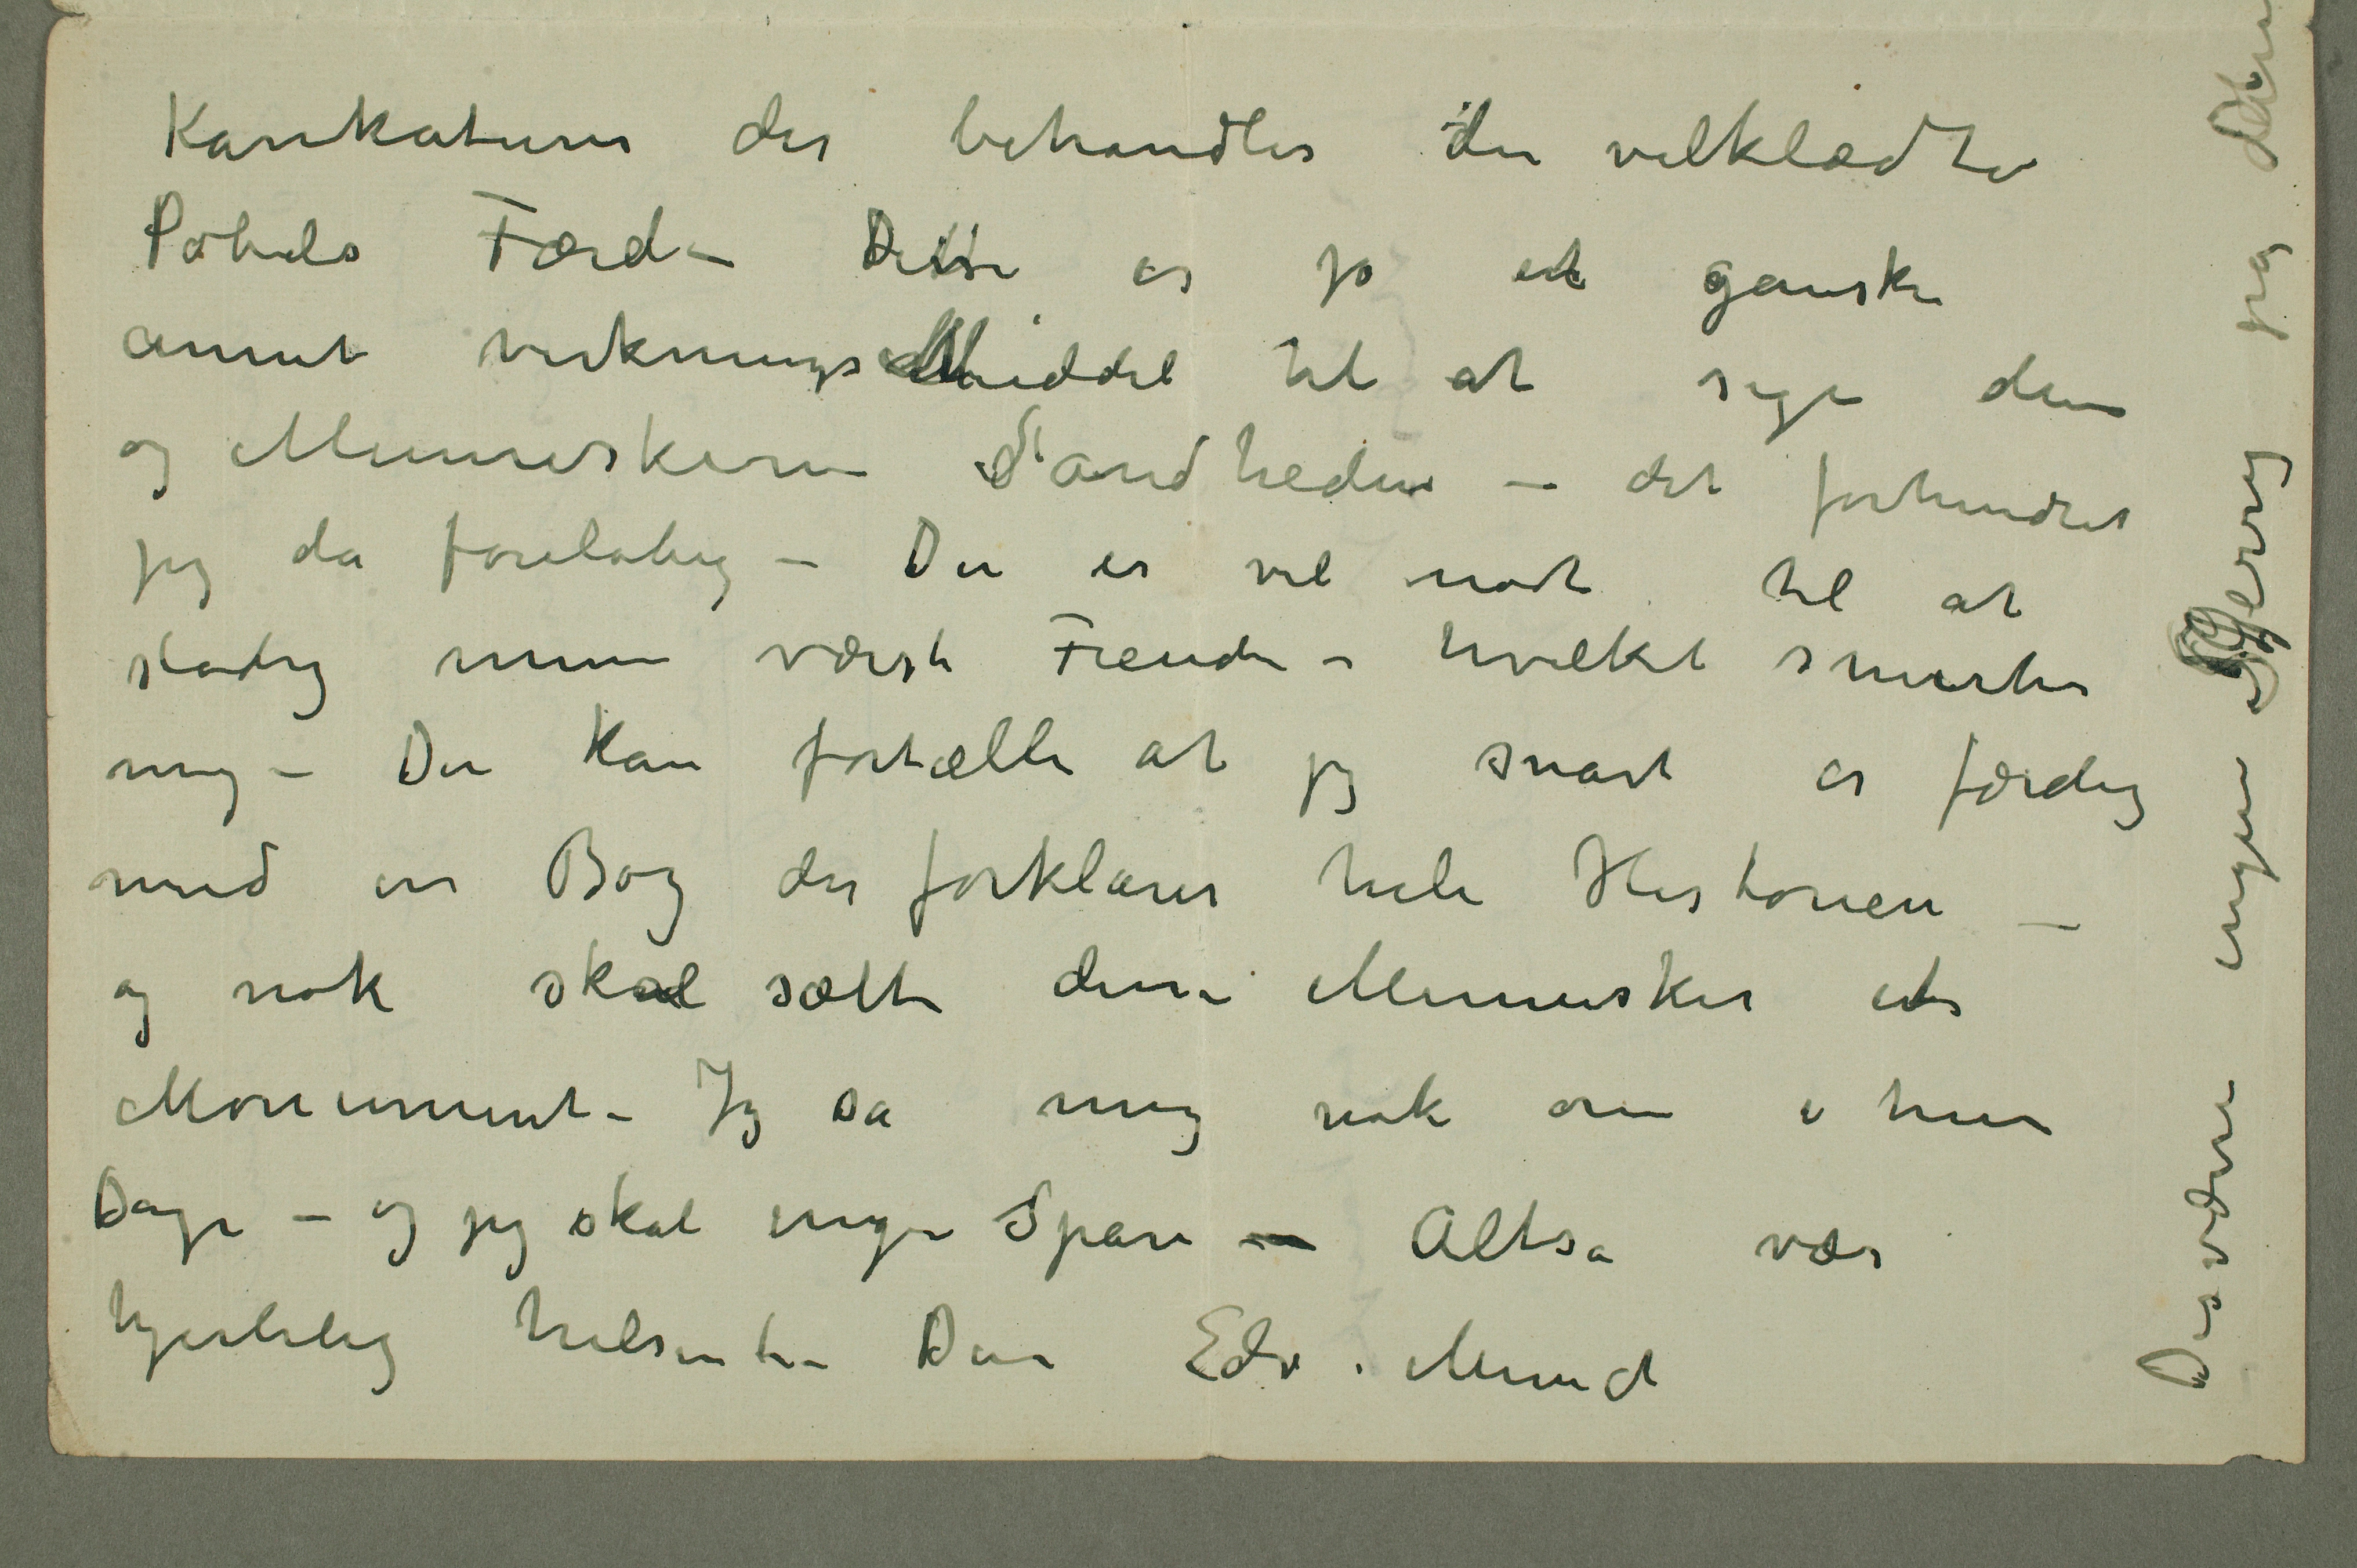 Karikaturer der behandler den velklædte
Pøbels Færd – Dette er jo et ganske
annet virkningsMiddel til at sige dem
og Menneskene Sandheden – det forhindret
jeg da foreløbig – Du er vel nødt til at
stødig mine værste Fiender – hvilket smerter
mig – Du kan fortælle at jeg snart er færdig
med en Bog der forklarer hele Historien –
og nok skal sætte disse Mennesker et
Monument – Jeg så mig nok om i hine
Dage – og jeg skal ingen Spare – Altså vær
hjertelig hilset – Din Edv. Munch
Desværre ingen Sverig jeg